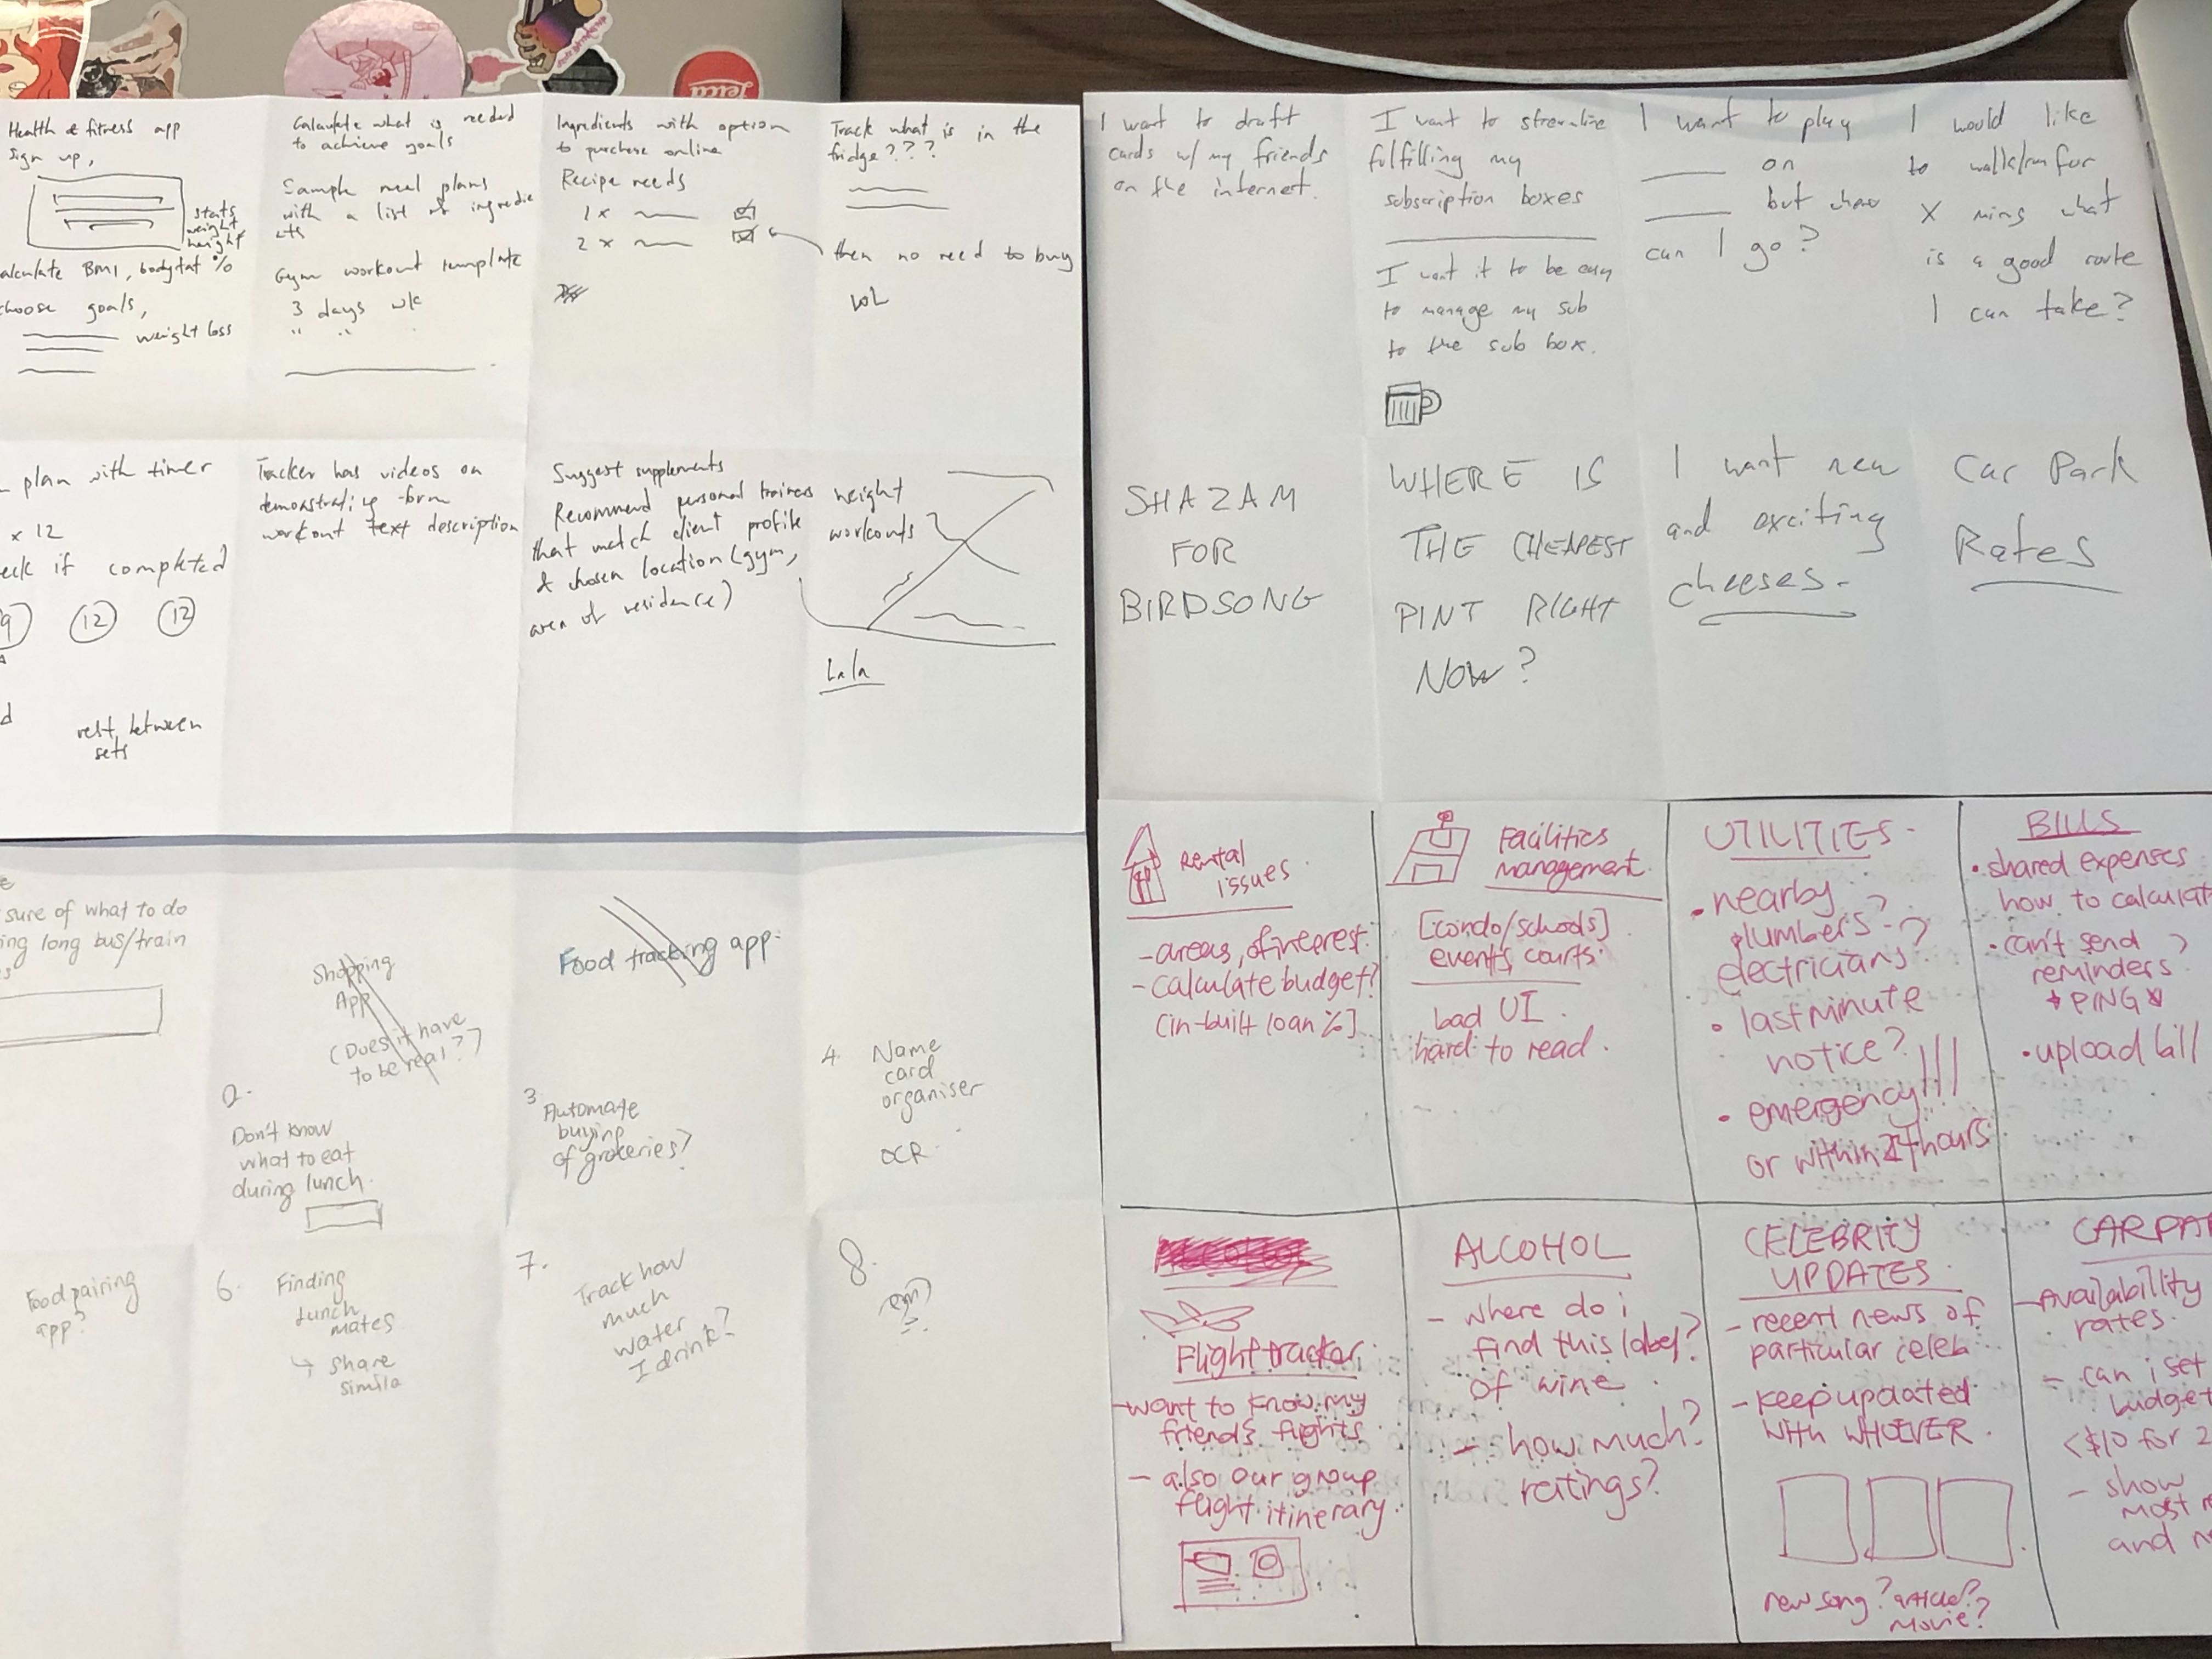 Leica
Health & fitness app
sign up,
stats
weight
height
alculate BMI, bodyfat %
choose goals,
weight loss
Calculate what is needed
to achieve goals
Sample meal plans
with a list of ingredie
nts
Gym workout template
3 days wk
" "
Ingredients with option
to purchase online
Recipe needs
1 x
2 x
Track what is in the
fridge???
then no need to buy
LOL
plan with timer
x 12
eck if completed
9 12 12
d
rest between
sets
Tracker has videos on
demonstrating form
workout text description
Suggest supplements
Recommend personal trainers
that match client profile
& chosen location (gym,
area of residence)
weight
workouts
Lala
I want to draft
cards w/ my friends
on the internet.
I want to streamline
fulfilling my
subscription boxes
I want it to be easy
to manage my sub
to the sub box.
I want to play
____ on
____ but where
can I go?
I would like
to walk/run for
X mins what
is a good route
I can take?
SHAZAM
FOR
BIRDSONG
WHERE IS
THE CHEAPEST
PINT RIGHT
NOW?
I want new
and exciting
cheeses.
Car Park
Rates
e
sure of what to do
ing long bus/train
s
Shopping
App
(Does it have
to be real?)
2.
Don't know
what to eat
during lunch.
Food tracking app.
3.
Automate
buying
of groceries?
4. Name
card
organiser
OCR
Food pairing
app?
6. Finding
lunch
mates
↳ share
simila
7.
Track how
much
water
I drink?
8.
Rental
issues.
- areas of interest.
- calculate budget?
[in-built loan %]
Facilities
management.
[condo/schools]
events, courts.
bad UI.
hard to read.
UTILITIES.
• nearby
plumbers?
electricians?
• last minute
notice?
• emergency!!!
or within 24 hours
BILLS
• shared expenses
how to calculat
• can't send
reminders?
*PING*
• upload bill
Flight tracker
- want to know my
friend's flights
- also our group
flight itinerary.
ALCOHOL
- where do i
find this label?
of wine.
- how much?
ratings?
CELEBRITY
UPDATES.
- recent news of
particular celeb
- keep updated
WITH WHOEVER.
new song? article?
movie?
CARPA
- Availability
rates.
- can i set
budget
<$10 for 2
- show
most
and